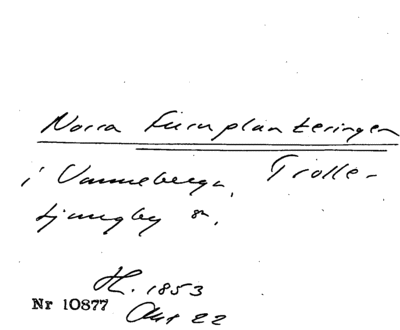 Norra Furuplanteringen
i Vanneberga, Trolle-
ljungby sn.
H. 1853
Nr 10877 Akt 22